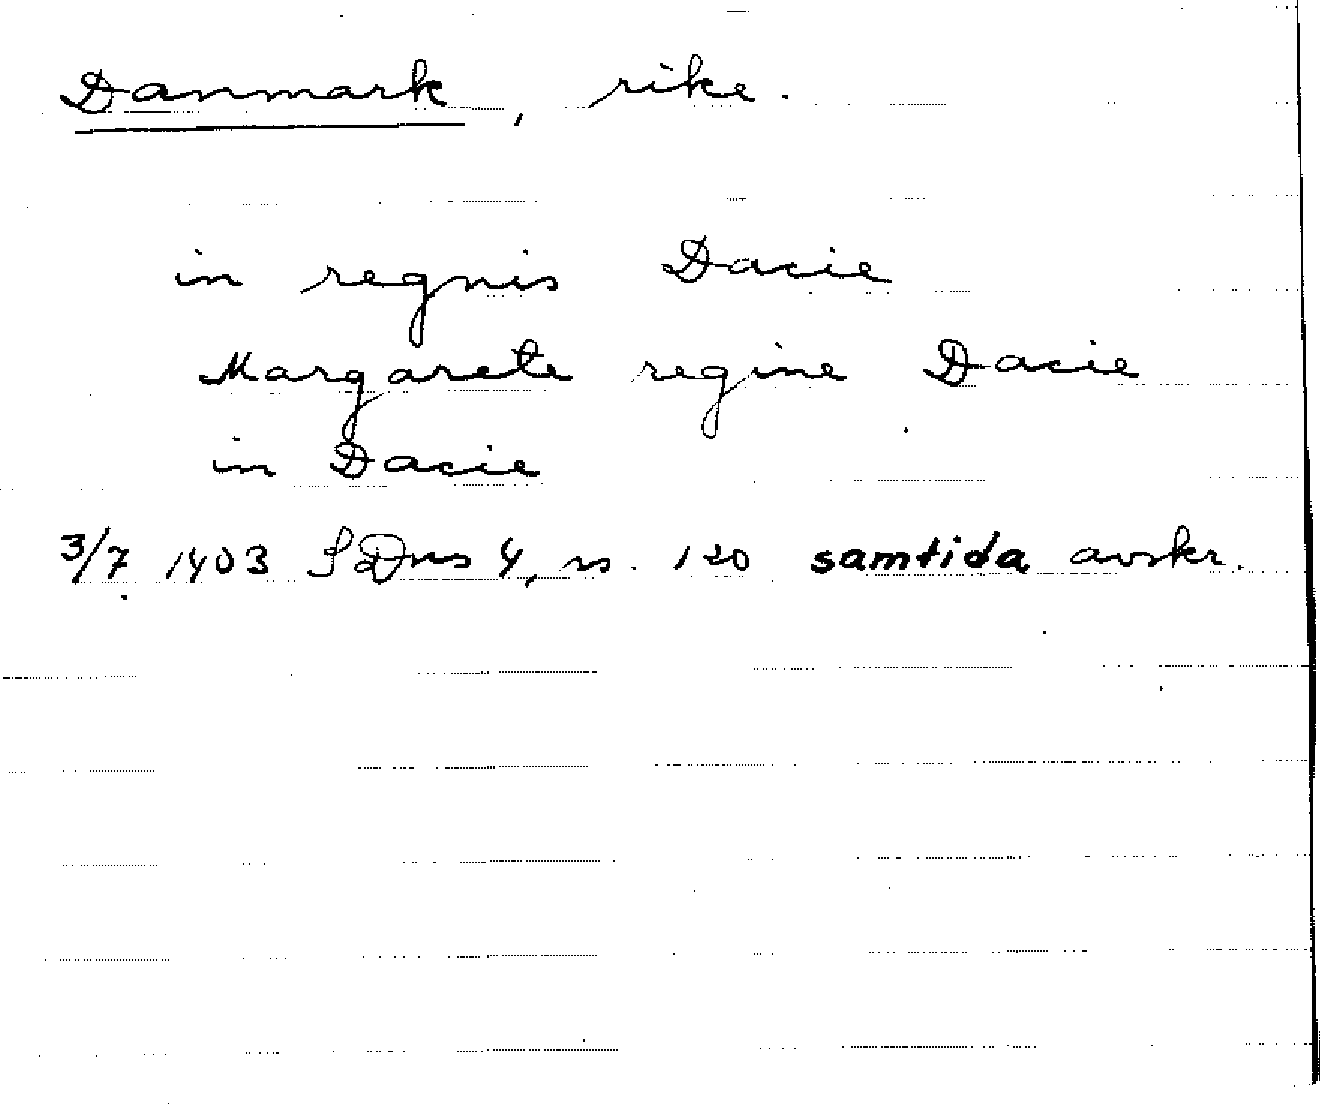 Danmark, rike.
in regnis Dacie
Margarete regine Dacie
in Dacie
3/7 1403 SDns 4, s. 120 samtida avskr.